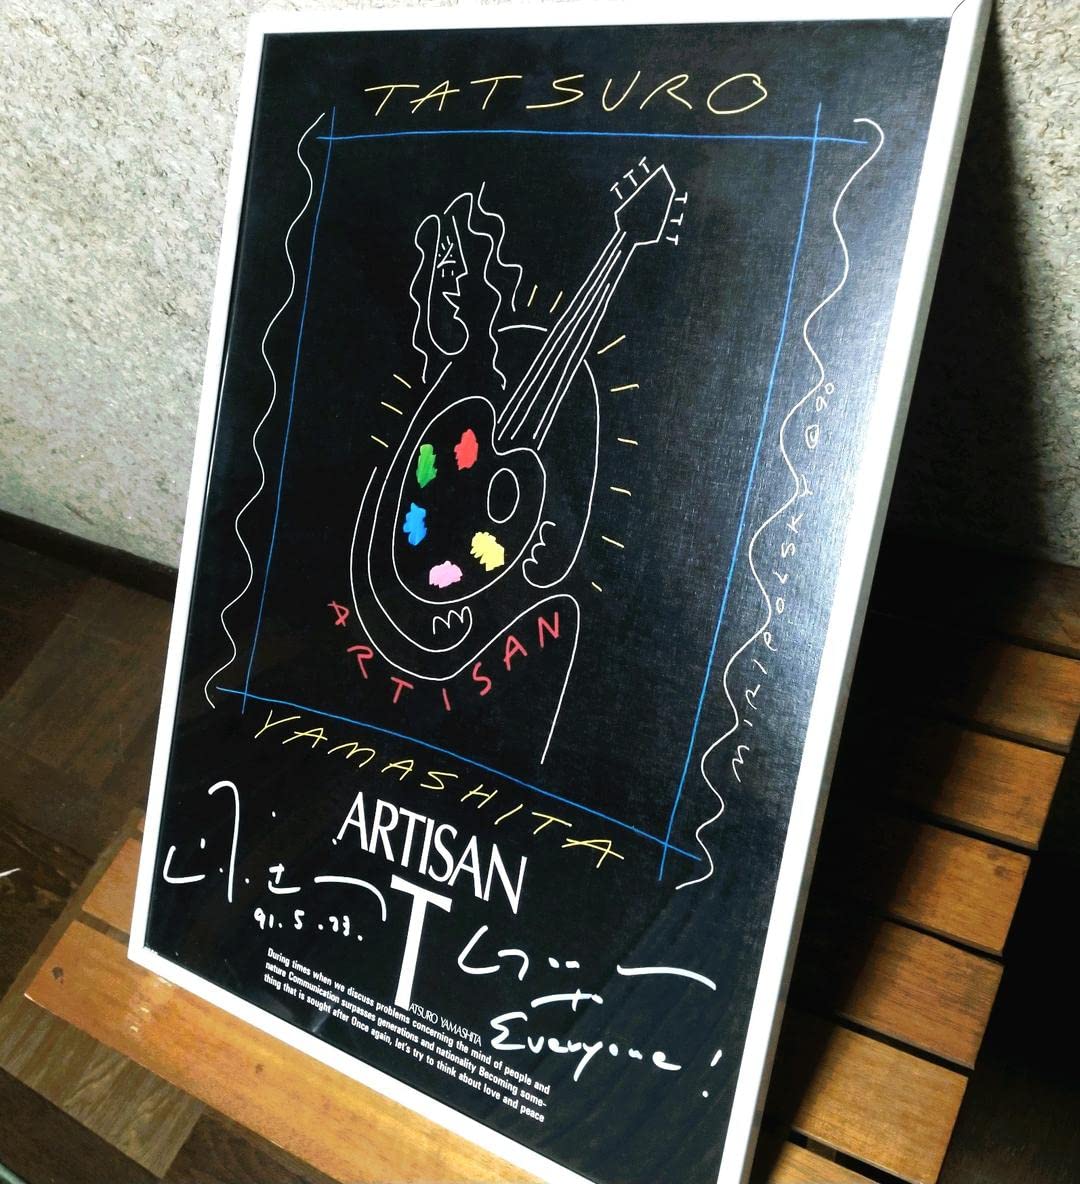 TATSURO
ARTISAN
YAMASHITA
ARTISAN
T
ATSURO YAMASHITA
91.5.23.
Everyone!
During times when we discuss problems concerning the mind of people and
nature Communication surpasses generations and nationality Becoming some-
thing that is sought after Once again, let's try to think about love and peace